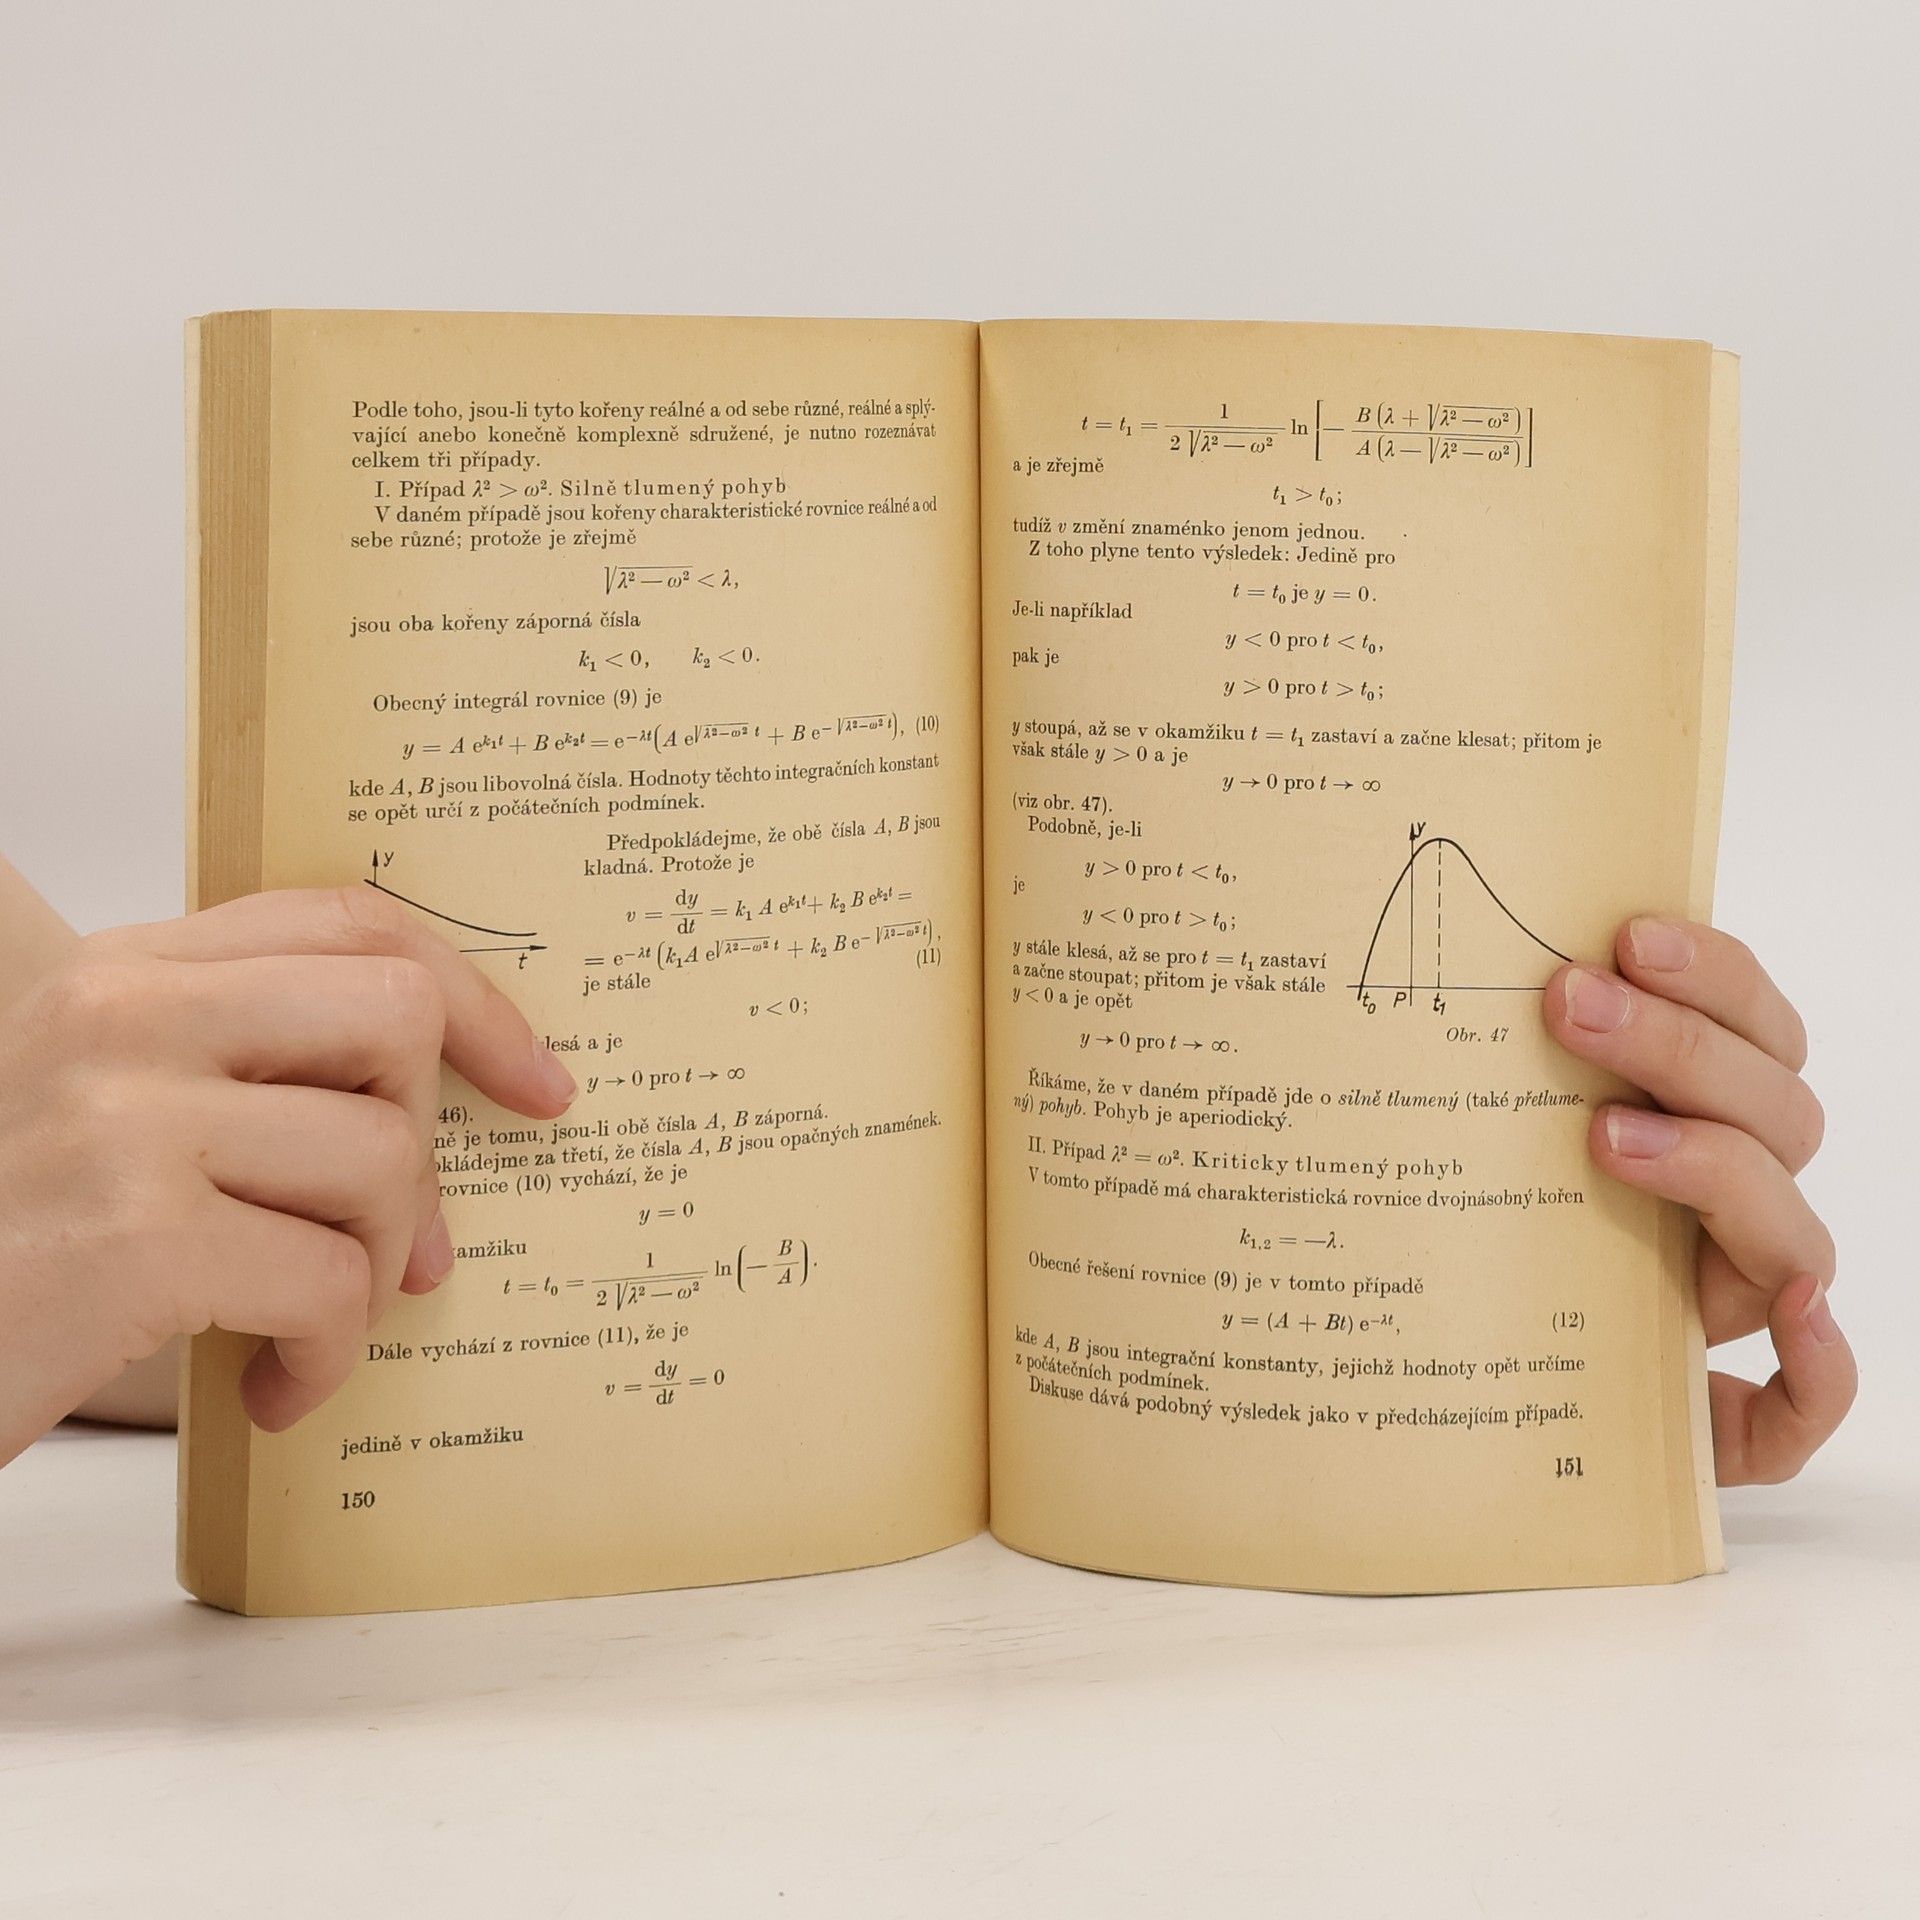 Podle toho, jsou-li tyto kořeny reálné a od sebe různé, reálné a splý-
vající anebo konečně komplexně sdružené, je nutno rozeznávat
celkem tři případy.
I. Případ λ² > ω². Silně tlumený pohyb
V daném případě jsou kořeny charakteristické rovnice reálné a od
sebe různé; protože je zřejmě
√(λ² — ω²) < λ,
jsou oba kořeny záporná čísla
k₁ < 0, k₂ < 0.
Obecný integrál rovnice (9) je
y = A e^(k₁t) + B e^(k₂t) = e^(−λt) (A e^(√(λ²−ω²) t) + B e^(−√(λ²−ω²) t)), (10)
kde A, B jsou libovolná čísla. Hodnoty těchto integračních konstant
se opět určí z počátečních podmínek.
y
t
Předpokládejme, že obě čísla A, B jsou
kladná. Protože je
v = dy/dt = k₁ A e^(k₁t) + k₂ B e^(k₂t) =
= e^(−λt) (k₁A e^(√(λ²−ω²) t) + k₂ B e^(−√(λ²−ω²) t)),
(11)
je stále
v < 0;
a je
y → 0 pro t → ∞
46).
je tomu, jsou-li obě čísla A, B záporná.
za třetí, že čísla A, B jsou opačných znamének.
rovnice (10) vychází, že je
y = 0
t = t₀ = 1/(2 √(λ² — ω²)) ln (− B/A).
Dále vychází z rovnice (11), že je
v = dy/dt = 0
jedině v okamžiku
150
t = t₁ = 1/(2 √(λ² — ω²)) ln [− B (λ + √(λ² — ω²))/A (λ — √(λ² — ω²))]
a je zřejmě
t₁ > t₀;
tudíž v změní znaménko jenom jednou.
Z toho plyne tento výsledek: Jedině pro
t = t₀ je y = 0.
Je-li například
y < 0 pro t < t₀,
pak je
y > 0 pro t > t₀;
y stoupá, až se v okamžiku t = t₁ zastaví a začne klesat; přitom je
však stále y > 0 a je
y → 0 pro t → ∞
(viz obr. 47).
Podobně, je-li
y > 0 pro t < t₀,
je
y < 0 pro t > t₀;
y stále klesá, až se pro t = t₁ zastaví
a začne stoupat; přitom je však stále
y < 0 a je opět
y → 0 pro t → ∞.
y
t₀ P t₁
Obr. 47
Říkáme, že v daném případě jde o silně tlumený (také přetlume-
ný) pohyb. Pohyb je aperiodický.
II. Případ λ² = ω². Kriticky tlumený pohyb
V tomto případě má charakteristická rovnice dvojnásobný kořen
k₁,₂ = —λ.
Obecné řešení rovnice (9) je v tomto případě
y = (A + Bt) e^(−λt), (12)
kde A, B jsou integrační konstanty, jejichž hodnoty opět určíme
z počátečních podmínek.
Diskuse dává podobný výsledek jako v předcházejícím případě.
151